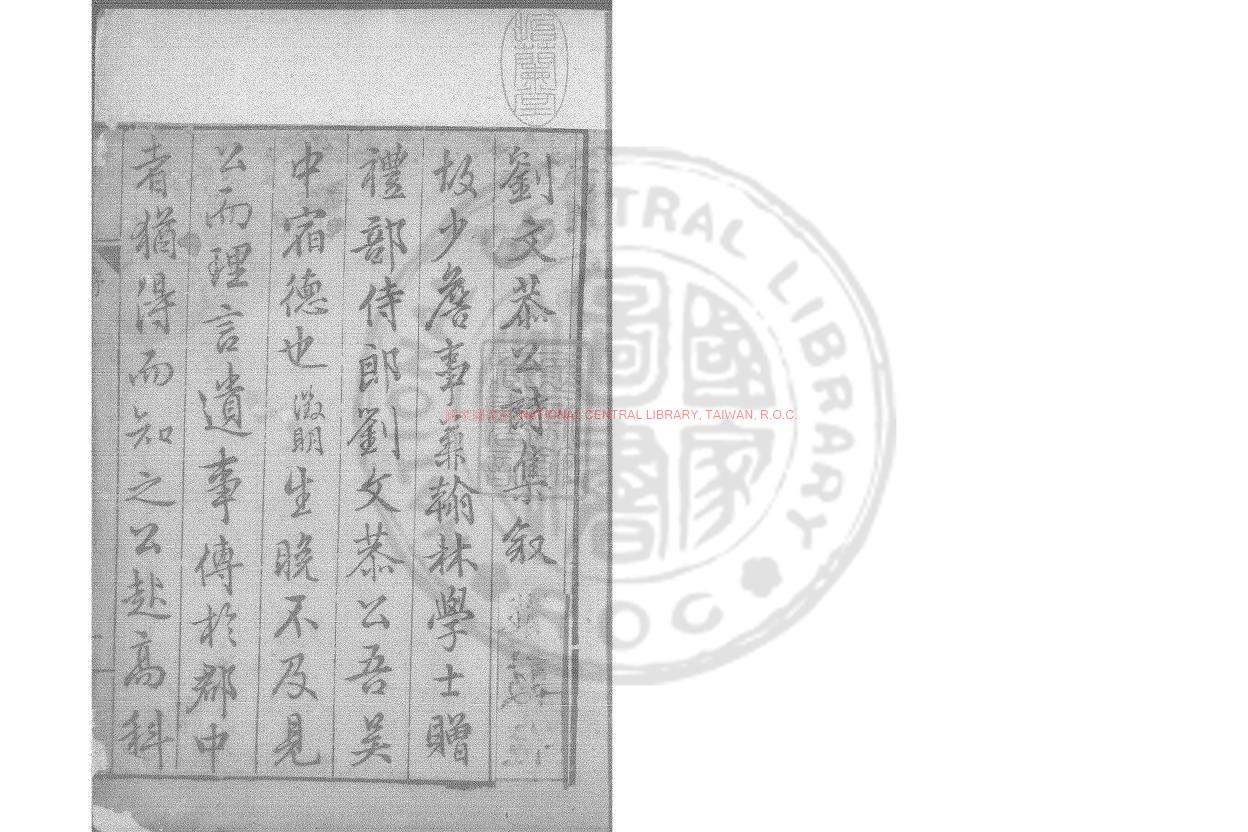 劉文恭公詩集叙
故少詹事兼翰林學士贈
禮部侍郎劉文恭公吾吴
中宿德也徵明生晚不及見
公而理言遺事傳於郡中
者猶得而知之公赴高科
NATIONAL CENTRAL LIBRARY, TAIWAN, R.O.C.